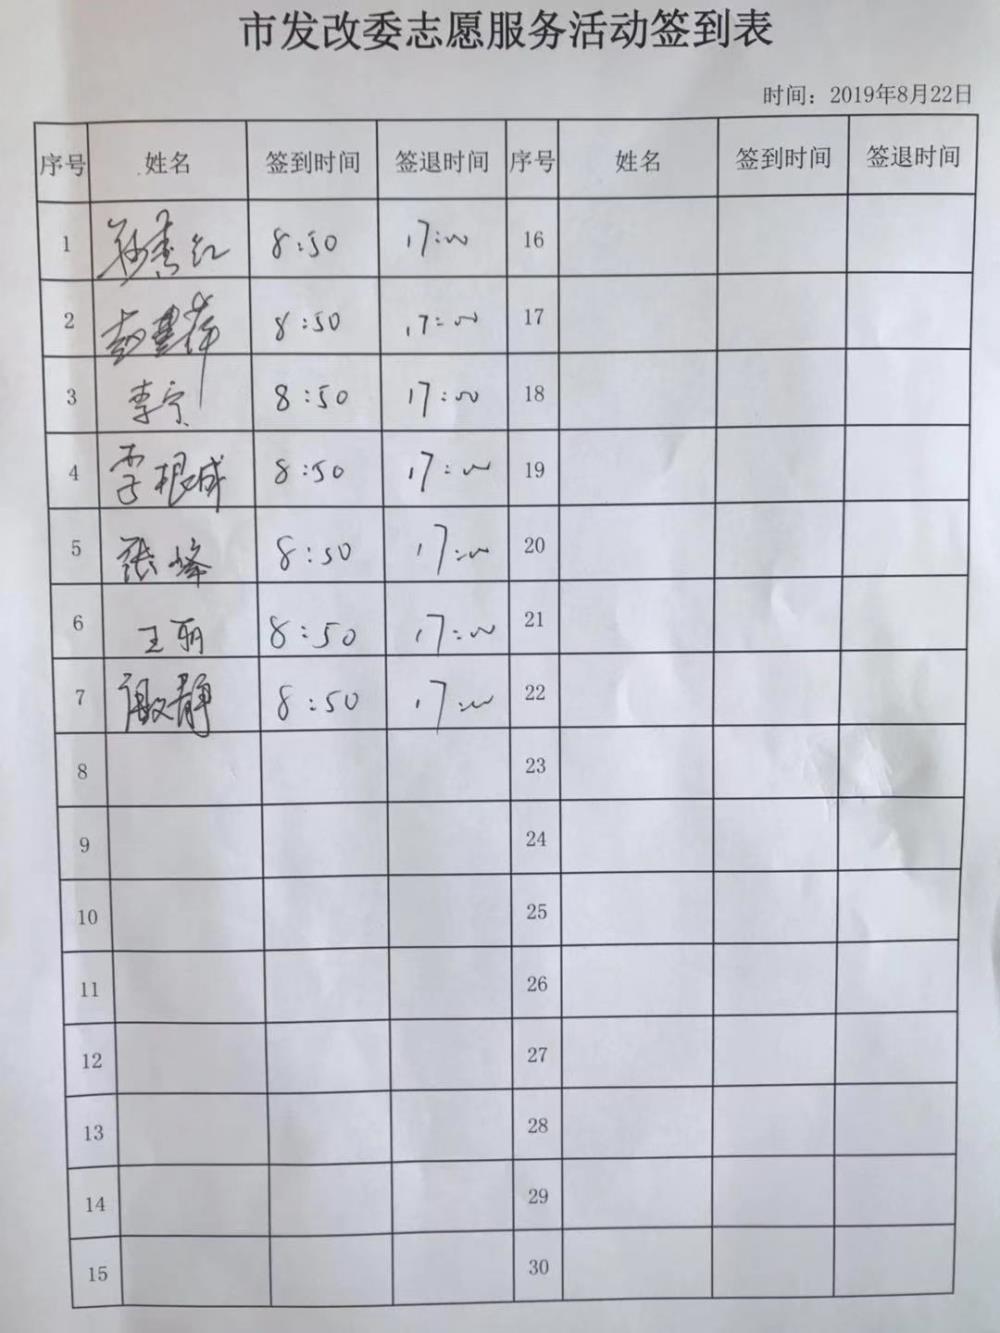 市发改委志愿服务活动签到表
时间：2019年8月22日
序号 姓名 签到时间 签退时间 序号 姓名 签到时间 签退时间
1 8:50 17:00 16
2 8:50 17:00 17
3 李宁 8:50 17:00 18
4 李根成 8:50 17:00 19
5 张峰 8:50 17:00 20
6 王丽 8:50 17:00 21
7 静 8:50 17:00 22
8 23
9 24
10 25
11 26
12 27
13 28
14 29
15 30